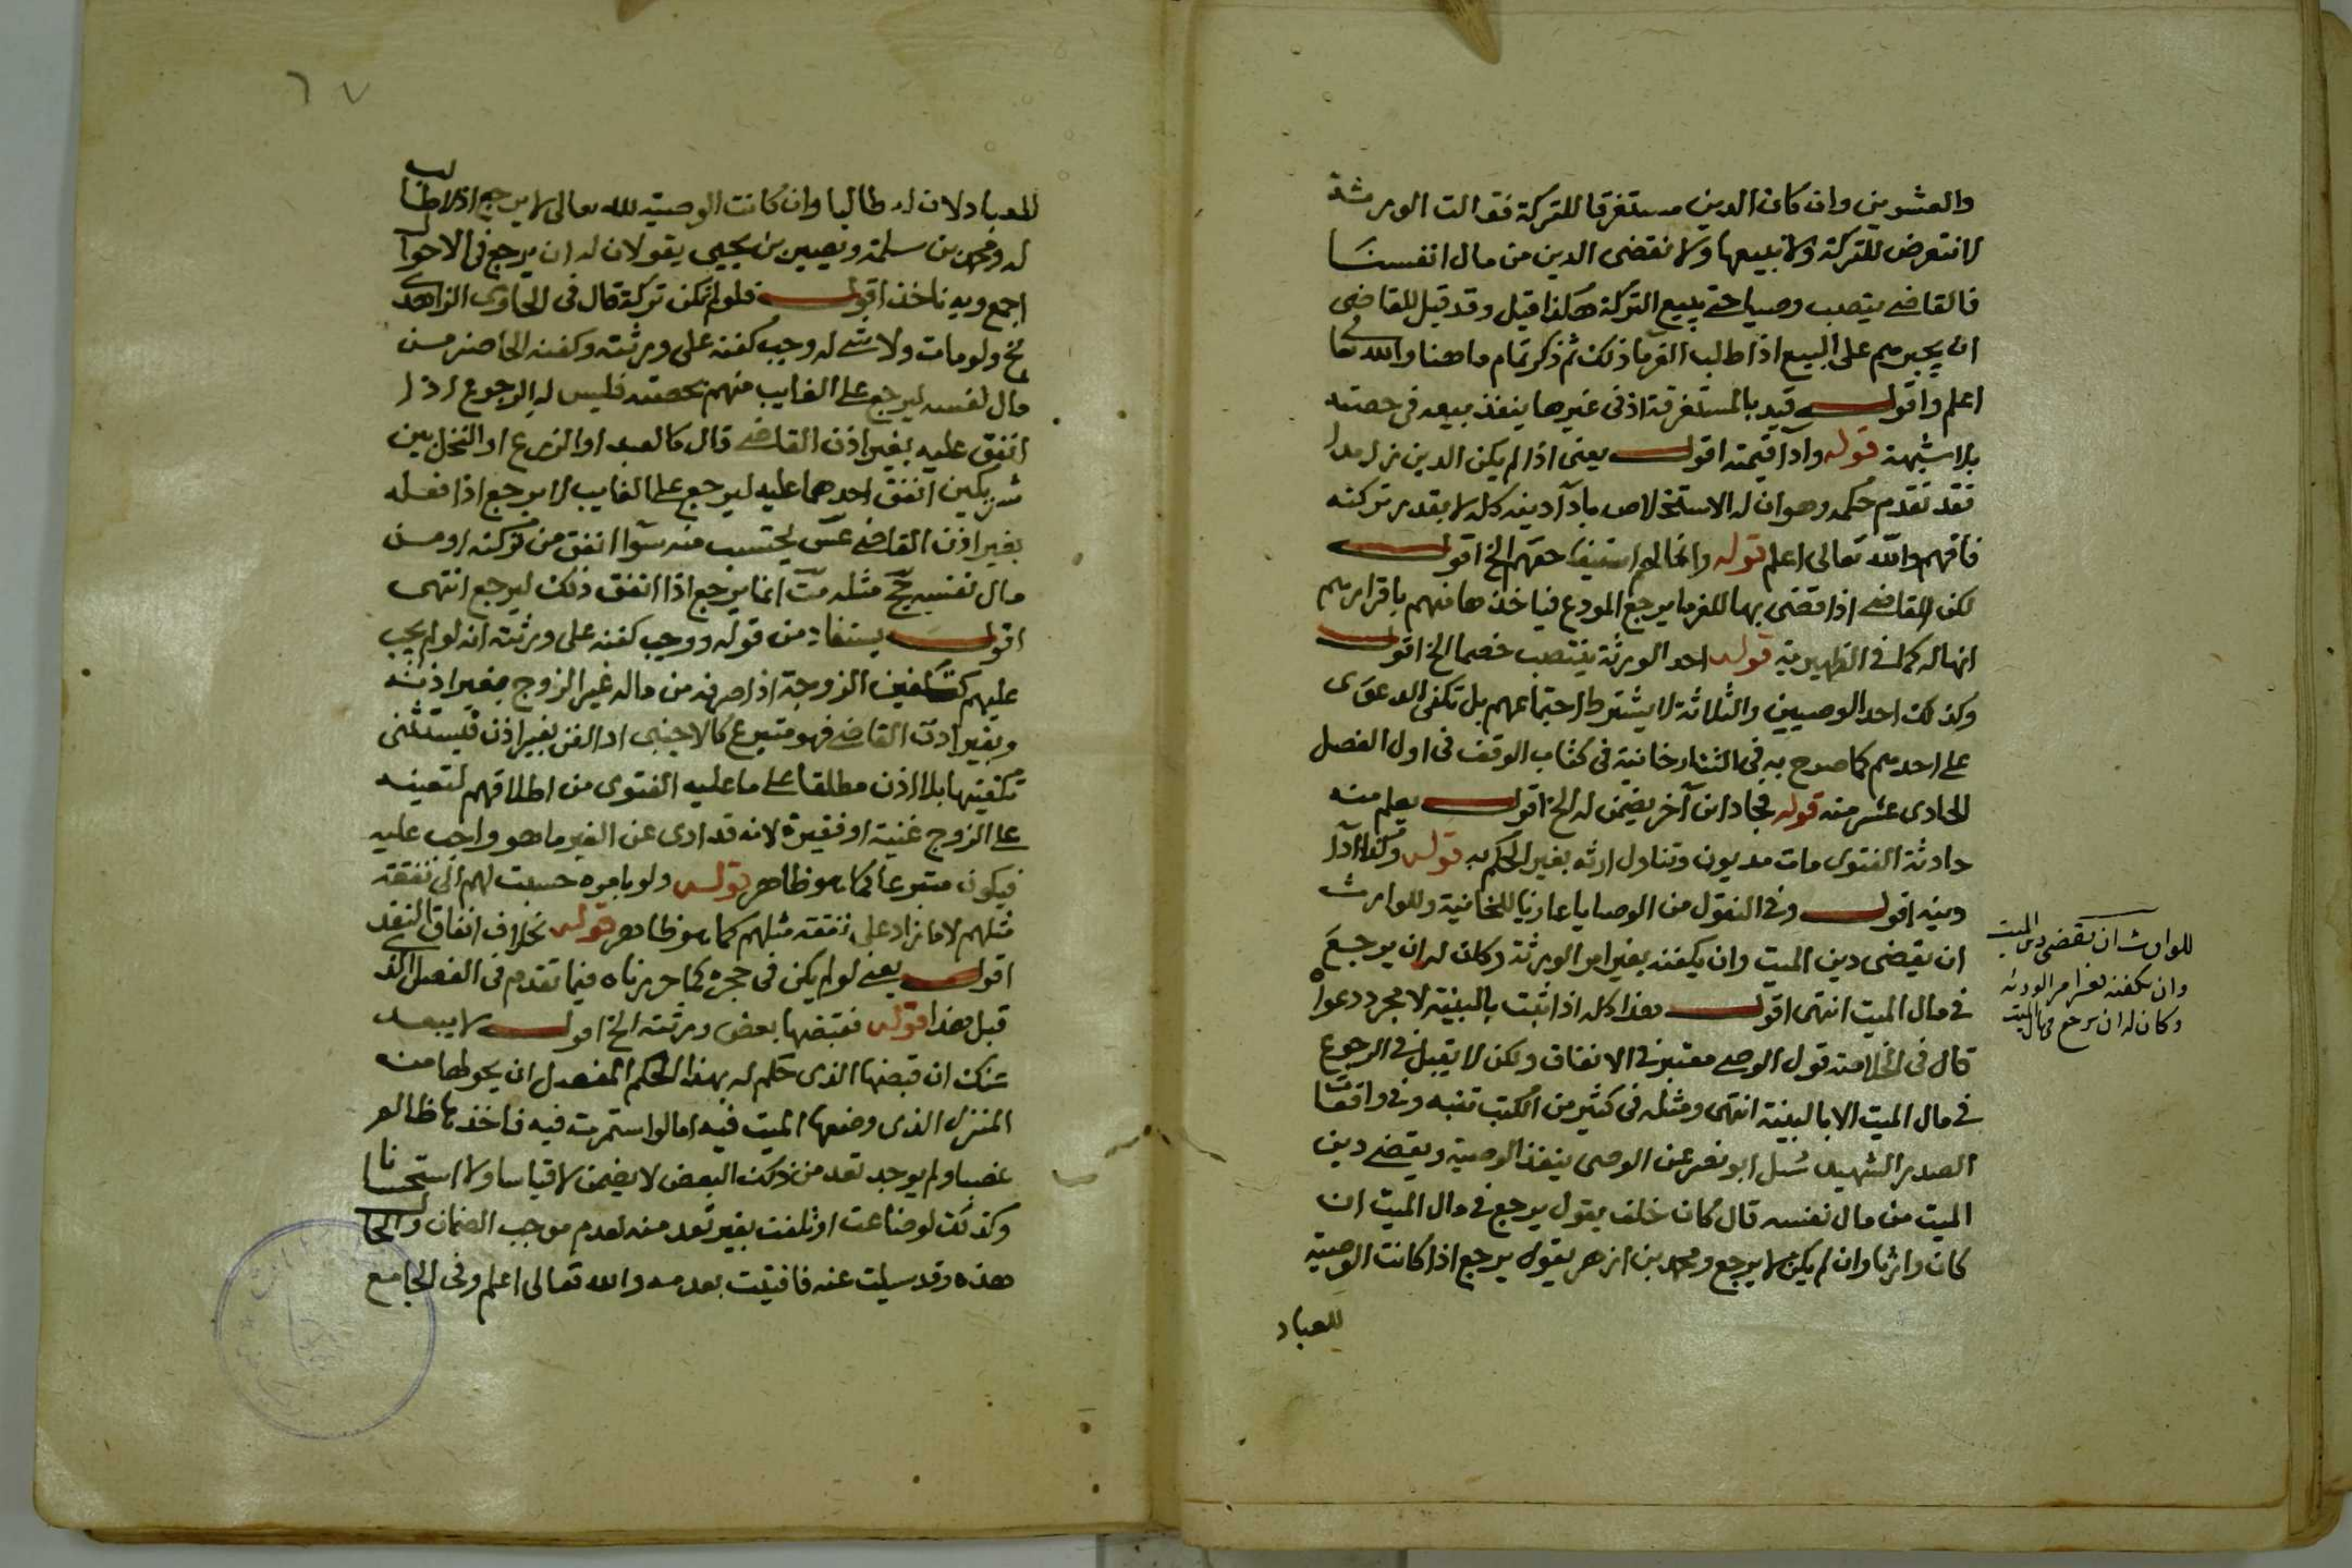 والعشرين وان كان الدين مستغرقا للتركة فقالت الورثة
لا نتعرض للتركة ولا نبيعها ولا نقضى الدين من مال انفسنا
فالقاضى ينصب وصيا حتى يبيع التركة هكذا قيل وقد قيل للقاضى
ان يجبرهم على البيع اذا طلب الغرما ذلك ثم ذكر تمام ما هنا والله تعالى
اعلم واقول قيد بالمستغرقة اذ فى غيرها ينفذ بيعه فى حصته
بلا شبهة قوله وادا قيمته اقول يعنى اذا لم يكن الدين زايدا
فقد تقدم حكمه وهو ان له الاستخلاص بادآ دينه كله لا بقدر تركته
فافهم والله تعالى اعلم قوله وانما لهم استيفا حقهم الخ اقول
لكن للقاضى اذا قضى بها للغرما يرجع المودع فياخذها منهم باقرارهم
انها له كما فى الظهيرية قوله احد الورثة ينتصب خصما الخ اقول
وكذلك احد الوصيين والثلاثة لا يشترط اجتماعهم بل تكفى الدعوى
على احدهم كما صرح به فى التتارخانية فى كتاب الوقف فى اول الفصل
الحادى عشر منه قوله فجا دائن آخر يضمن له الخ اقول يعلم منه
حادثة الفتوى مات مديون وتناول ارثه بغير الحكم به قوله وكذا ادآ
دينه اقول وفى النقول من الوصايا عازيا للخانية وللوارث
ان يقضى دين الميت وان يكفنه بغير امر الورثة وكان له ان يرجع
فى مال الميت انتهى اقول هذا كله اذا ثبت بالبينة لا مجرد دعواه
قال فى الخلاصة قول الوصى معتبر فى الانفاق ولكن لا يقبل فى الرجوع
فى مال الميت الا بالبينة انتهى ومثله فى كثير من الكتب تنبه وفى واقعات
الصدر الشهيد سئل ابو نصر عن الوصى ينفذ الوصية ويقضى دين
الميت من مال نفسه قال كان خلف يقول يرجع فى مال الميت ان
كان وارثا وان لم يكن لا يرجع ومحمد بن ازهر يقول يرجع اذا كانت الوصية
للعباد
للوارث ان يقضى دين الميت
وان يكفنه بغير امر الورثة
وكان له ان يرجع فى مال الميت
٦٧
للعباد لان له طالبا وان كانت الوصية لله تعالى لا يرجع اذ لا طالب
له ومحمد بن سلمة ونصير بن يحيى يقولان له ان يرجع فى الاحوال
اجمع وبه ناخذ اقول فلو لم تكن تركة قال فى الحاوى الزاهدى
نخ ولو مات ولا شى له وجب كفنه على ورثته وكفنه الحاضر من
مال نفسه ليرجع على الغايب منهم بحصته فليس له الرجوع اذا
انفق عليه بغير اذن القاضى قال كالعبد او الزرع او النخل بين
شريكين انفق احدهما عليه ليرجع على الغايب لا يرجع اذا فعله
بغير اذن القاضى عس يحتسب منه سوآ انفق من تركته او من
مال نفسه جح مثله مت انما يرجع اذا انفق ذلك ليرجع انتهى
اقول يستفاد من قوله ووجب كفنه على ورثته انه لو لم يجب
عليهم كتكفين الزوجة اذا صرفه من ماله غير الزوج بغير اذنه
وبغير اذن القاضى فهو متبرع كالاجنبى اذ الفن بغير اذن فيستثنى
تكفينها بلا اذن مطلقا على ما عليه الفتوى من اطلاقهم لتعينه
على الزوج غنية او فقيرة لانه قد ادى عن الغير ما هو واجب عليه
فيكون متبرعا كما هو ظاهر قوله ولو بامره حسبت لهم الى نفقة
مثلهم لا ما زاد على نفقة مثلهم كما هو ظاهر قوله بخلاف انفاق النقد
اقول يعنى لو لم يكن فى حجره كما حررناه فيما تقدم فى الفصل الذى
قبل هذا قوله فقبضها بعض ورثته الخ اقول لا يبعد
شك ان قبضها الذى حكم له بهذا الحكم المفصل ان يحولها منه
المنزل الذى وضعها الميت فيه اما لو استمرت فيه فاخذها ظالم
غصبا ولم يوجد تعد من ذلك البعض لا يضمن لا قياسا ولا استحسانا
وكذلك لو ضاعت او تلفت بغير تعد منه لعدم موجب الضمان والحال
هذه وقد سيلت عنه فافتيت بعدمه والله تعالى اعلم وفى الجامع